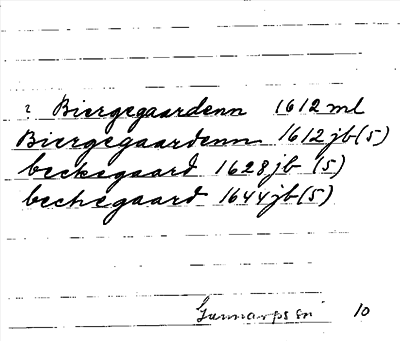 ? Biergegaardenn 1612 ml
Biergegaardenn 1612 jb (5)
beckegaard 1628 jb (5)
bechegaard 1644 jb (5)
Gunnarps sn 10